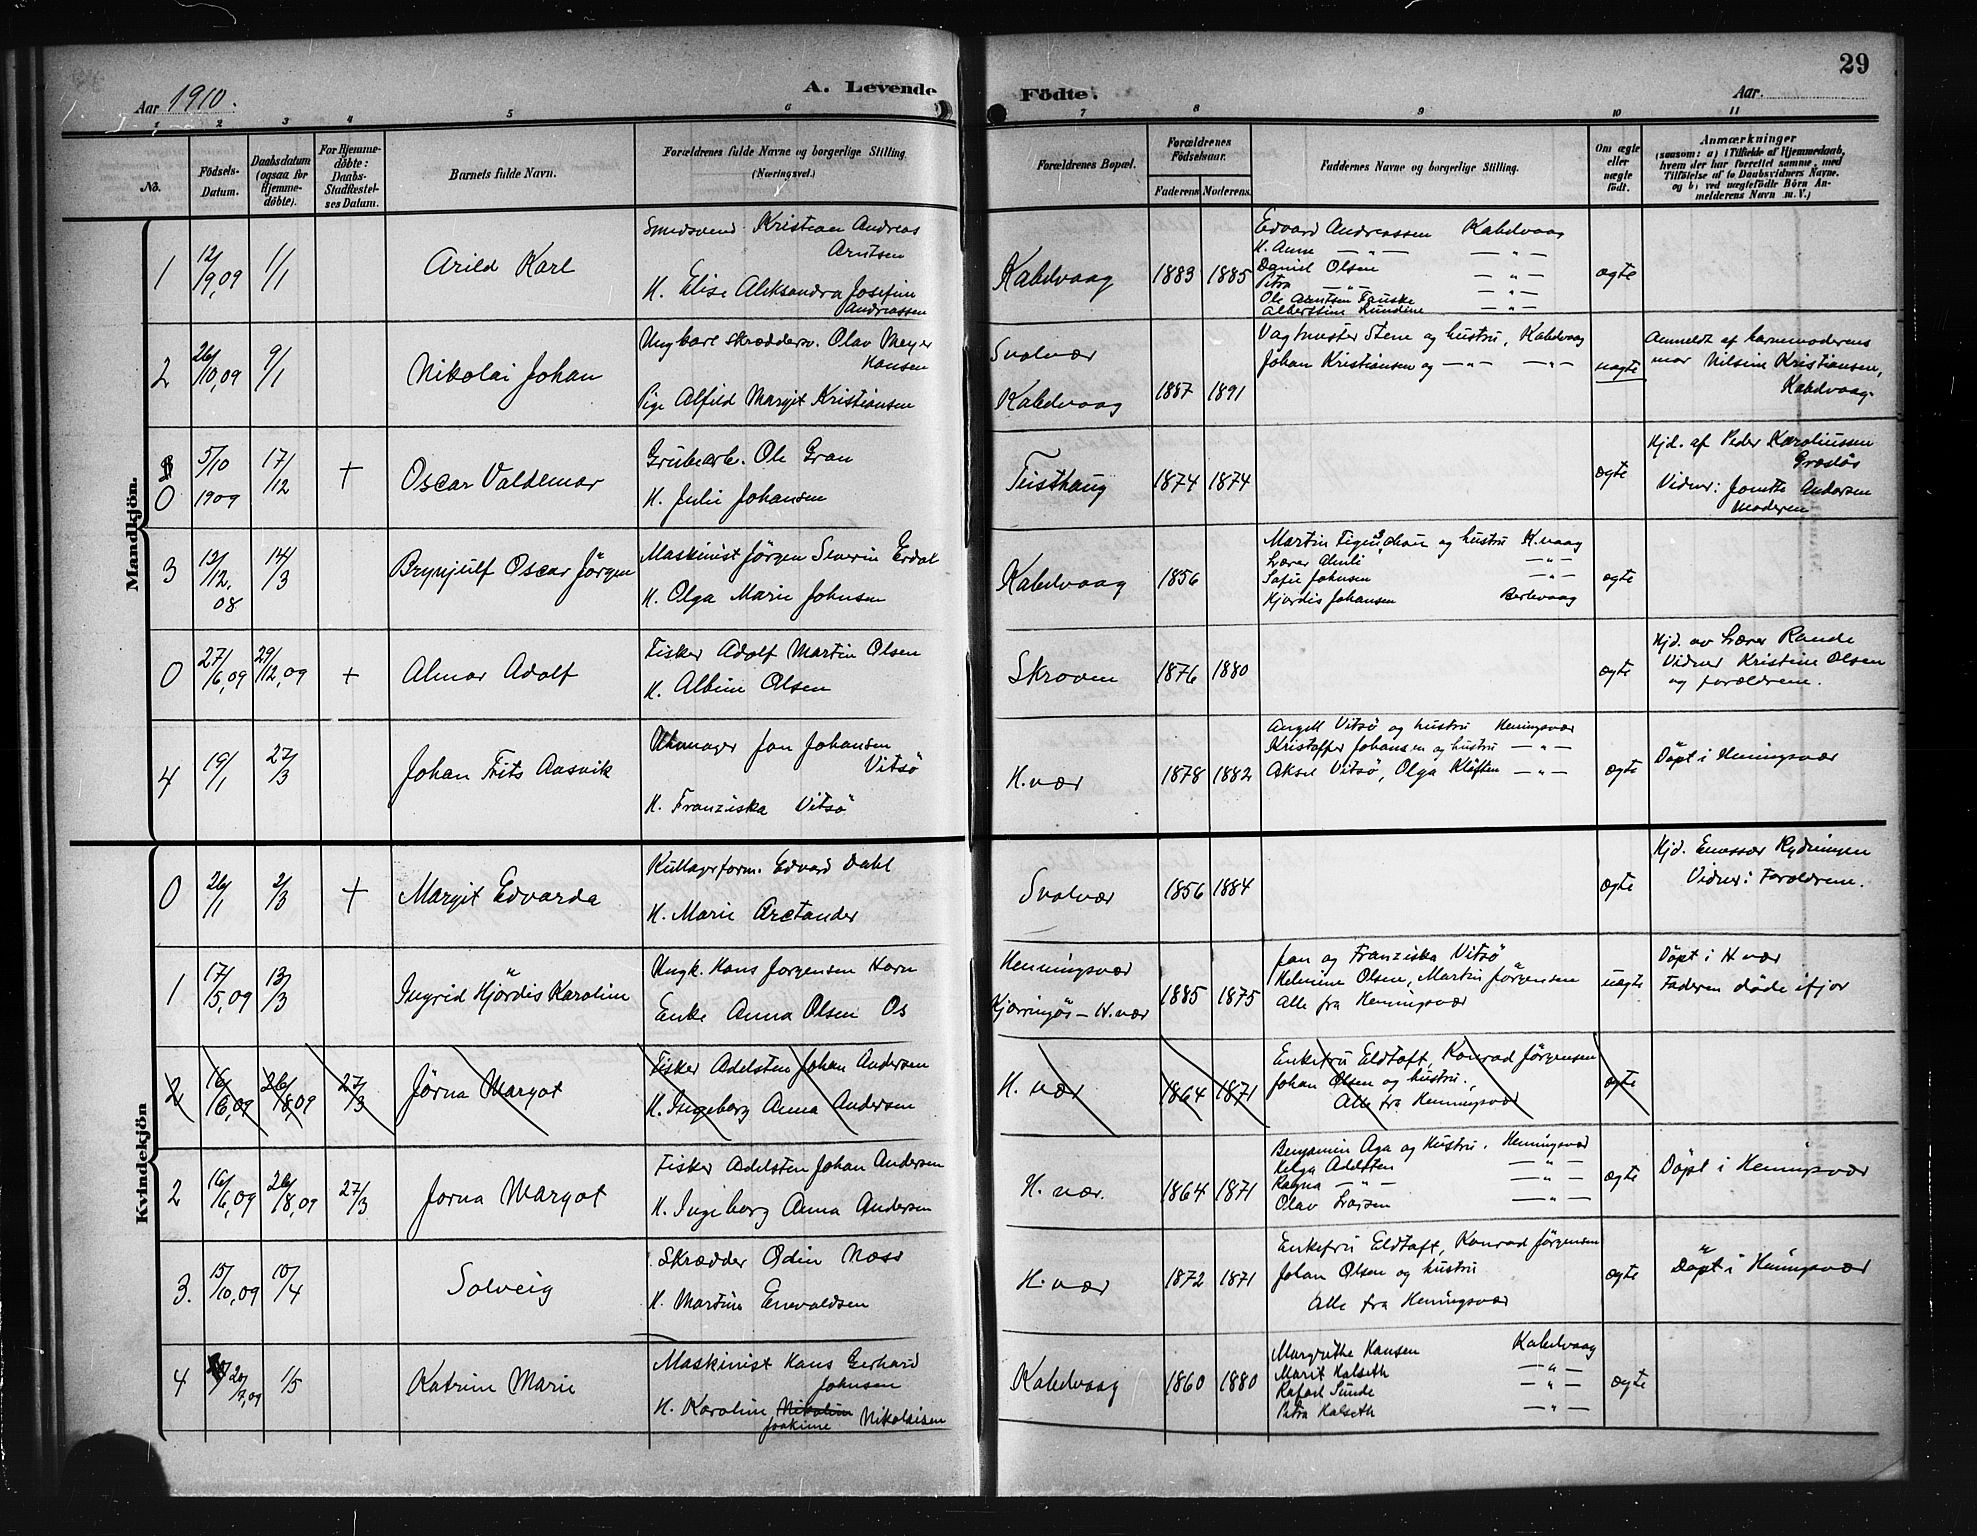 29
Aar 1910.
A. Levende
Födte.
Aar.
1 2 3 4 5 6 7 8 9 10 11
No.
Födsels-
Datum.
Daabsdatum
(ogsaa for
Hjemme-
döbte).
For Hjemme-
döbte:
Daabs-
Stadfæstel-
ses Datum.
Barnets fulde Navn.
Forældrenes fulde Navne og borgerlige Stilling.
(Næringsvei.)
Forældrenes Bopæl.
Forældrenes
Födselsaar.
Faderens.
Moderens.
Faddernes Navne og borgerlige Stilling.
Om ægte
eller
uægte
födt.
Anmærkninger
(saasom: a) i Tilfælde af Hjemmedaab,
hvem der har forrettet samme, med
Tilföielse af to Daabsvidners Navne.
og b) ved uægtefödte Börn An-
melderens Navn m. V.)
Mandkjön.
1
12/9,09
1/1
Arild Karl
Smedsvend Kristian Andreas
Arntsen
H. Elise Aleksandra Josefine
Andreassen
Kabelvaag
1883
1885
Edvard Andreassen Kabelvaag
H. Anne — " — — " —
Daniel Olsen — " —
Petra — " — — " —
Ole Arntsen Fauske — " —
Albertine Lundine — " —
ægte
2
26/10,09
9/1
Nikolai Johan
Ungkarl skræddersv. Olav Meyer
Hansen
Pige Alfild Margit Kristiansen
Svolvær
Kabelvaag
1887
1891
Vagtmester Stene og hustru, Kabelvaag
Johan Kristiansen og — " — — " —
uægte
Anmeldt af barnemoderens
mor Nilsine Kristiansen,
Kabelvaag.
0
5/10
1909
17/12
+
Oscar Valdemar
Grubearb. Ole Gran
H. Julie Johansen
Teisthaug
1874
1874
ægte
Hjd. af Peder Karoliussen
Græsløs
Vidner: Jonette Andersen
Moderen
3
13/12,
08
14/3
Brynjulf Oscar Jörgen
Maskinist Jörgen Severin Erdal
H. Olga Marie Johnsen
Kabelvaag
1856
Martin og hustru K.vaag
Lærer — " —
Sofie Johnsen — " —
Hjørdis Johansen Berlevaag
ægte
0
27/6,09
29/12,09
+
Almar Adolf
Fisker Adolf Martin Olsen
H. Albine Olsen
Skroven
1876
1880
ægte
Hjd. av Lærer Rande
Vidner Kristine Olsen
og forældrene.
4
19/1
27/3
Johan Frits Aasvik
Uhrmager Jon Johansen
Vitsö
H. Franziska Vitsö
H.vær
1878
1882
Angell Vitsö og hustru Henningsvær
Kristoffer Johansen og hustru — " —
Aksel Vitsö, Olga Kløften — " —
ægte
Döpt i Henningsvær
Kvindekjön
0
26/1
2/3
+
Margit Edvarda
Kullagerform. Edvard Dahl
H. Marie Arctander
Svolvær
1856
1884
ægte
Hjd. Emissær Rydningen
Vidner: Forældrene.
1
17/5,09
13/3
Ingrid Hjördis Karoline
Ungk. Hans Jorgensen Horn
Enke Anna Olsen Os
Henningsvær
Kjørringøs — H.vær
1885
1875
Jon og Franziska Vitsö
Helmine Olsen, Martin Jörgensen
Alle fra Henningsvær
uægte
Döpt i H vær
Faderen döde ifjor
2
16/6,09
26/8,09
27/3
Jørna Margot
Fisker Adelsten Johan Andersen
H. Ingeborg Anna Andersen
H. vær
1864
1871
Enkefru Eldtoft, Konrad Jörgensen
Johan Olsen og hustru.
Alle fra Henningsvær
ægte
2
16/6,09
26/8,09
27/3
Jorna Margot
Fisker Adelsten Johan Andersen
H. Ingeborg Anna Andersen
H. vær.
1864
1871
Benjamin Aga og Hustru. Henningsvær
Helga Adelsten — " —
Ragna — " — — " —
Olav Larsen — " —
ægte
Döpt i Henningsvær
3.
15/10,09
10/4
Solveig
Skrædder Odin Næss
H. Martine Enevaldsen
H. vær
1872
1871
Enkefru Eldtoft, Konrad Jörgensen
Johan Olsen og hustru
Alle fra Henningsvær
ægte
Döpt i Henningsvær
4
20/3,09
1/5
Katrine Marie
Maskinist Hans Gerhard
Johnsen
H. Karoline Nikoline Nikolaisen
Joakime
Kabelvaag
1860
1880
Margrethe Hansen Kabelvaag
Marit Kalseth — " —
Rafael Sunde — " —
Petra Kalseth — " —
ægte